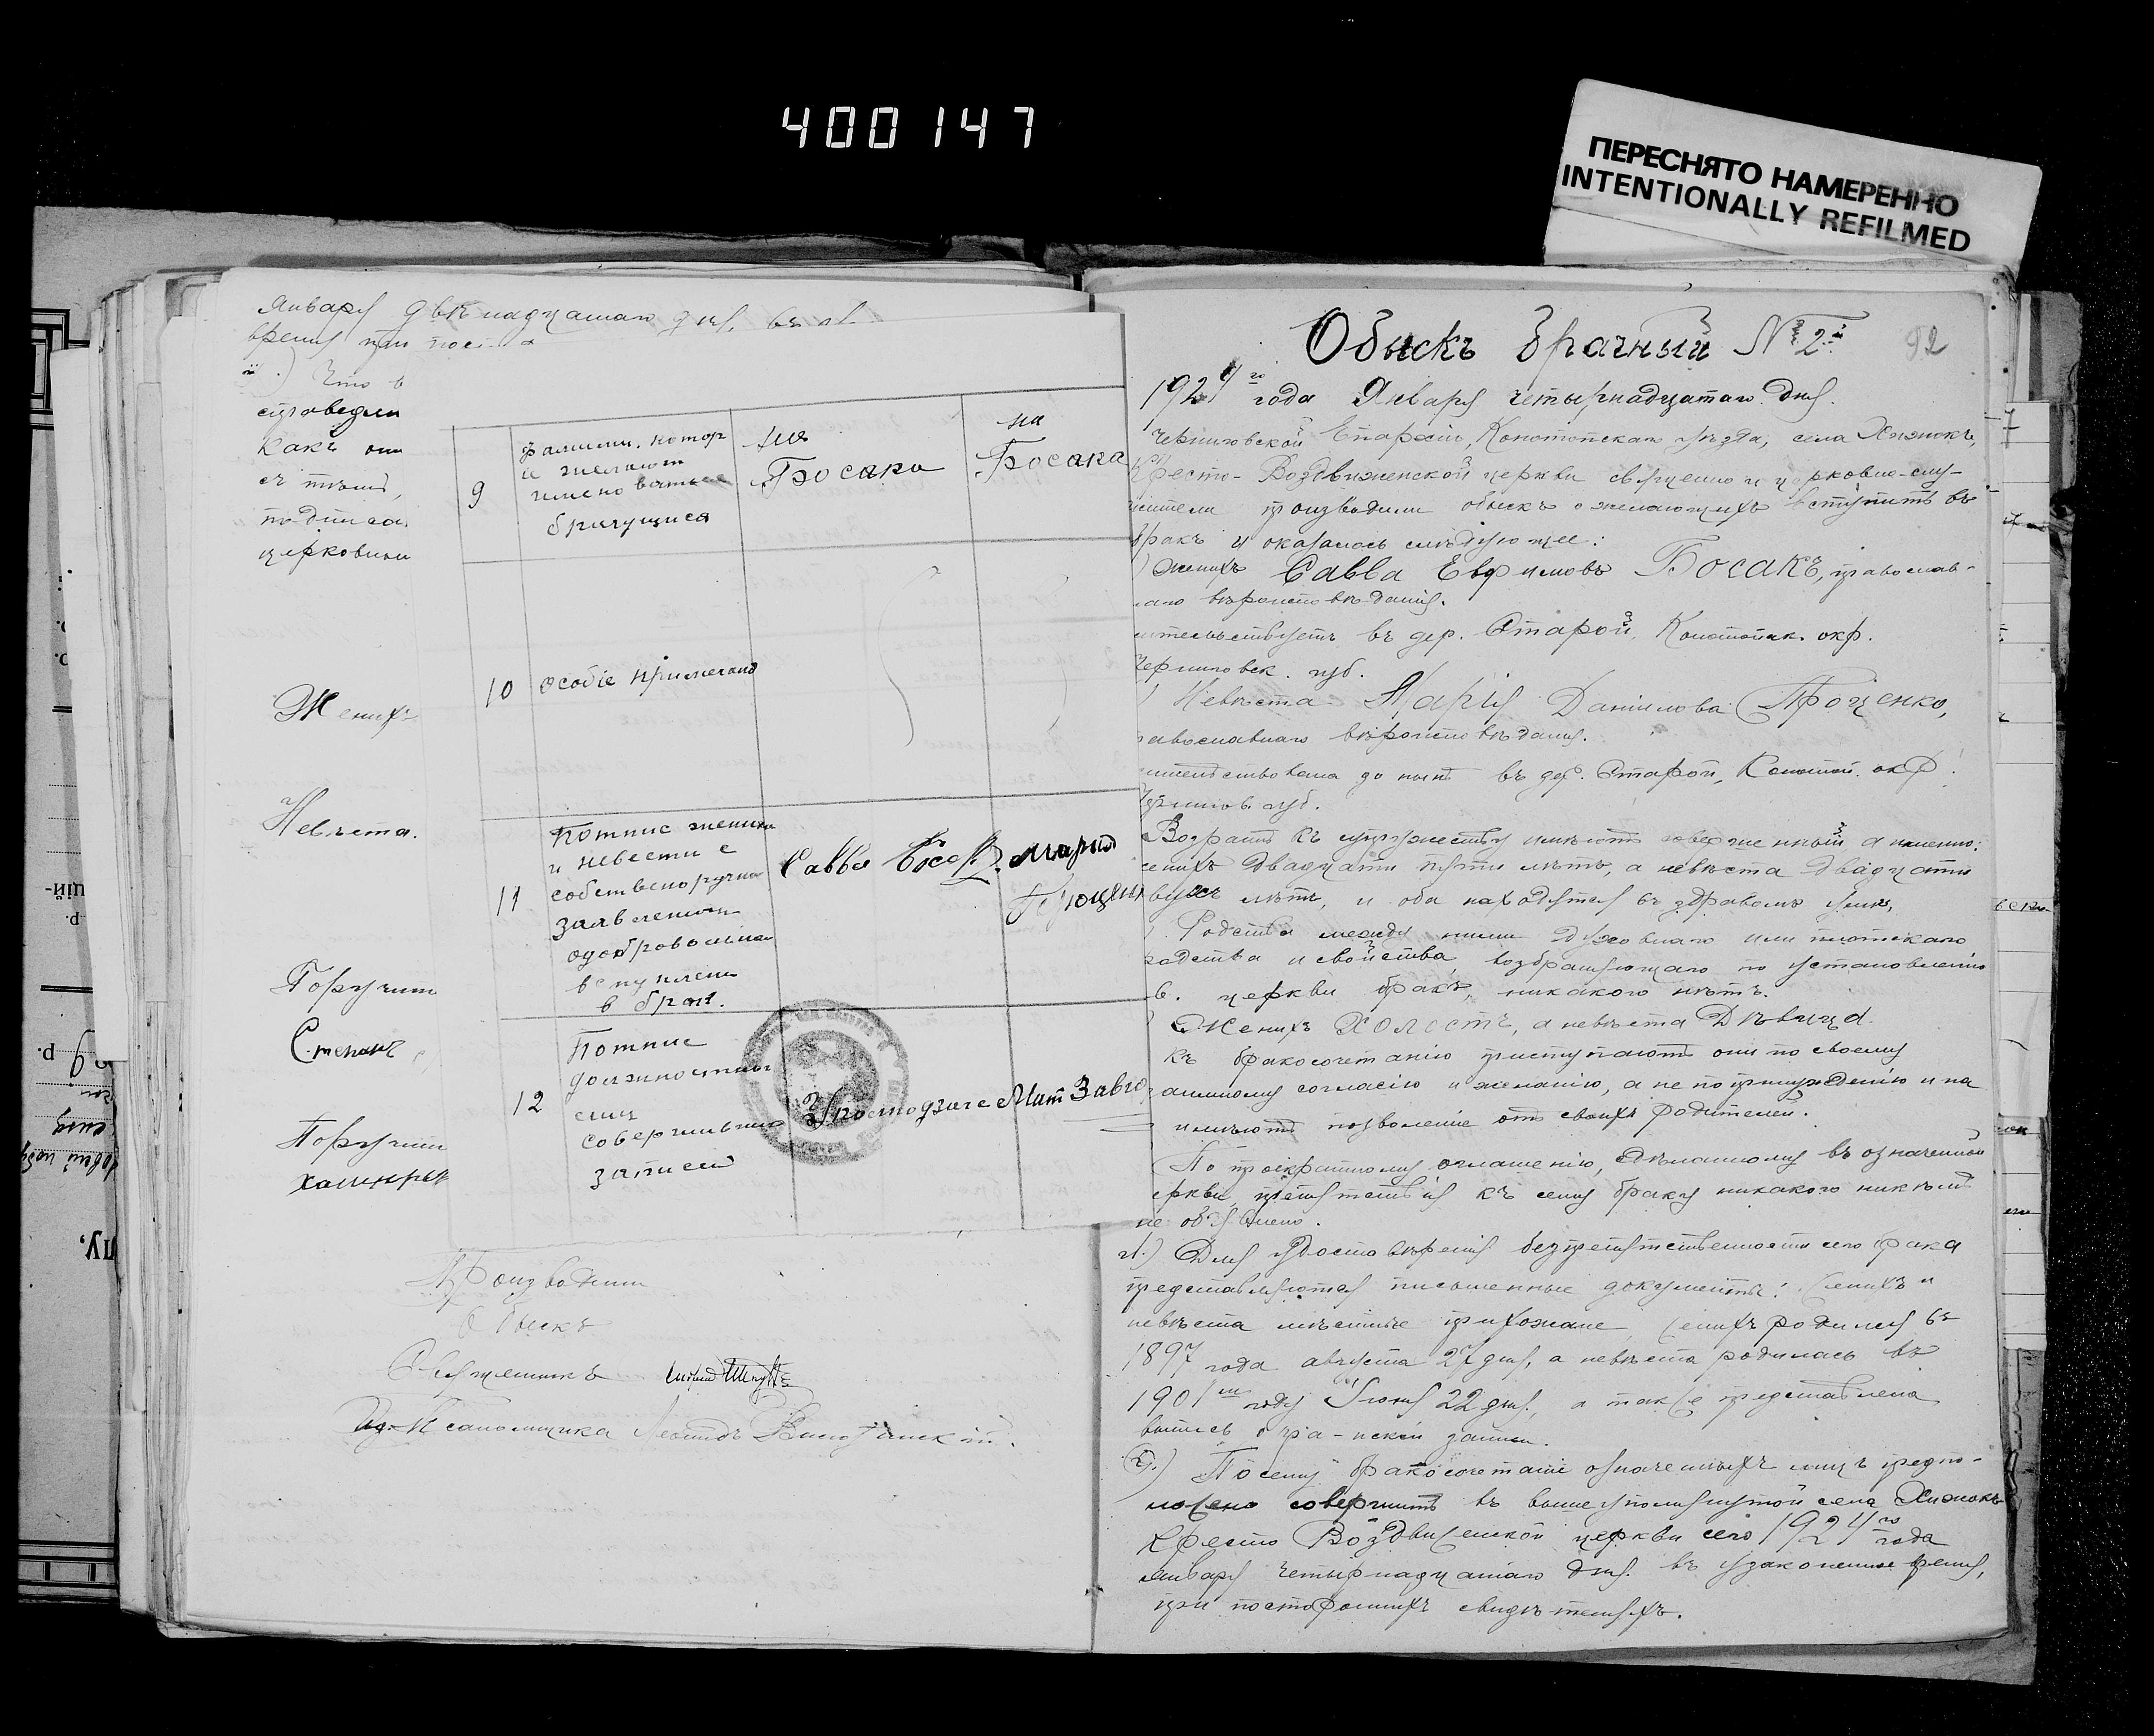 400147
ПЕРЕСНЯТО НАМЕРЕННО
INTENTIONALLY REFILMED
Январѧ двѣнадцатаго дня, въ
время при
Что в
справедли
какъ они
съ тѣмъ,
подписа
церковным
Женихъ
Невѣста.
Поручит
Степанъ
Поручит
Производили
Обыскъ
Священникъ
Псаломщика Леонидъ
9
фамили, котор
и желают
имено ватьсе
брачущися
на
Босака
на
Босака
10
особіе примечание
11
Потпис жениха
и невести с
собственоручна
заявлением
о добровольном
вступлени
в брак.
Савва Босак. Мария
Проценк
12
Потпис
должностных
лиц
совершивших
записей
Мит Завгор
Обыскъ брачный № 2й
92
1924го года Января четырнадцатаго дня.
Черниговской Епархіи, Конотопскаго уѣзда, села Хижокъ,
Кресто-Воздвиженской церкви священно и церковно-слу-
жители производили обыскъ о желающихъ вступить въ
бракъ и оказалось слѣдующее:
) Женихъ Савва Евфимовъ Босакъ, православ-
наго вѣроисповѣданія.
ительствуетъ въ дер. Старой, Конотопск. окр.
Черниговск. губ.
) Невѣста Марія Даніилова Проценко,
равославнаго вѣроисповѣданія.
ительствовала до нынѣ въ дер. Старой, Конотоп. окр.
Чернигов. губ.
Возрастъ къ супружеству имѣютъ совершенный а именно:
енихъ двадцати пяти лѣтъ, а невѣста двадцати
вухъ лѣтъ, и оба находятся въ здравомъ умѣ,
Родства между ними духовнаго или плотскаго
родства и свойства возбраняющаго по установленію
в. церкви бракъ, никакого нѣтъ.
Женихъ холостъ, а невѣста дѣвица.
Къ бракосочетанію приступаютъ они по своему
взаимному согласію и желанію, а не по принужденію и на
имѣютъ позволеніе отъ своихъ родителей.
По троекратному оглашенію, сдѣланному въ означенной
еркви, препятствія къ сему браку никакого никѣмъ
не объявлено.
Для удостовѣренія безпрепятственности сего брака
представляются письменные документы: женихъ и
невѣста мѣстные прихожане, женихъ родился въ
1897 года августа 27 дня, а невѣста родилась въ
1901м году Іюня 22 дня, а также представлена
выпись о гра-нской записи.
Посему бракосочетаніе означенныхъ лицъ предпо-
ложено совершить въ вышеупомянутой села Хижокъ
Кресто Воздвиженской церкви сего 1924го года
Января четырнадцатаго дня. въ узаконенное время,
при постороннихъ свидѣтеляхъ.